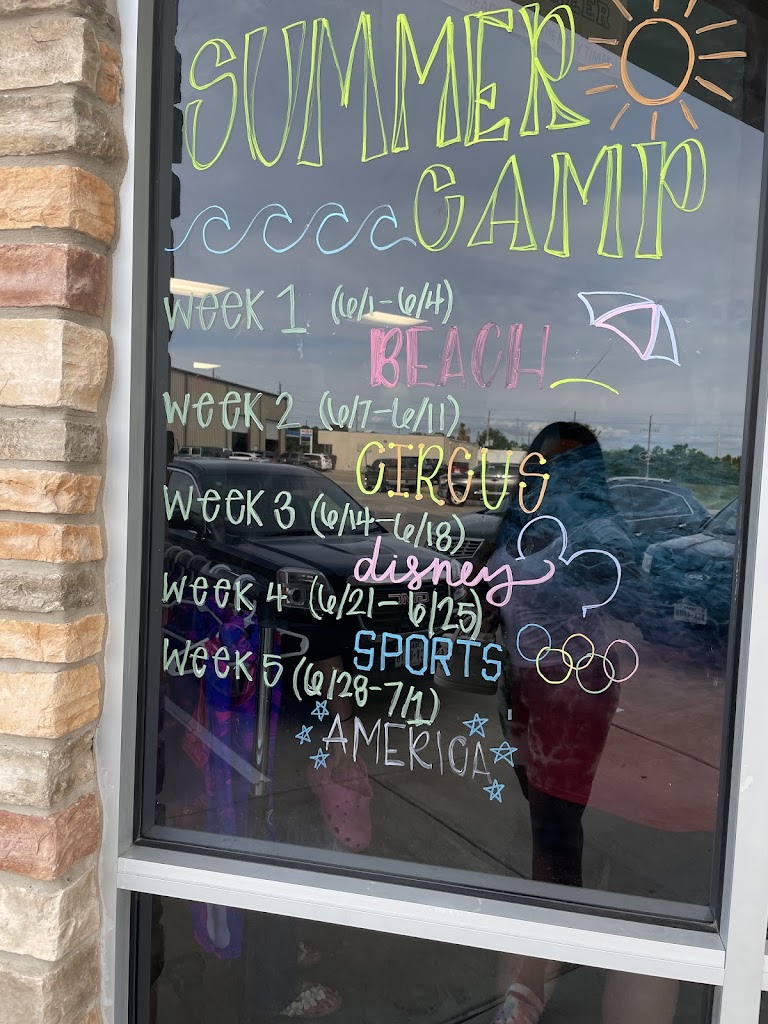 SUMMER
CAMP
WEEK 1 (6/1-6/4)
BEACH
WEEK 2 (6/7-6/11)
CIRCUS
WEEK 3 (6/14-6/18)
disney
WEEK 4 (6/21-6/25)
SPORTS
WEEK 5 (6/28-7/1)
AMERICA
GMC